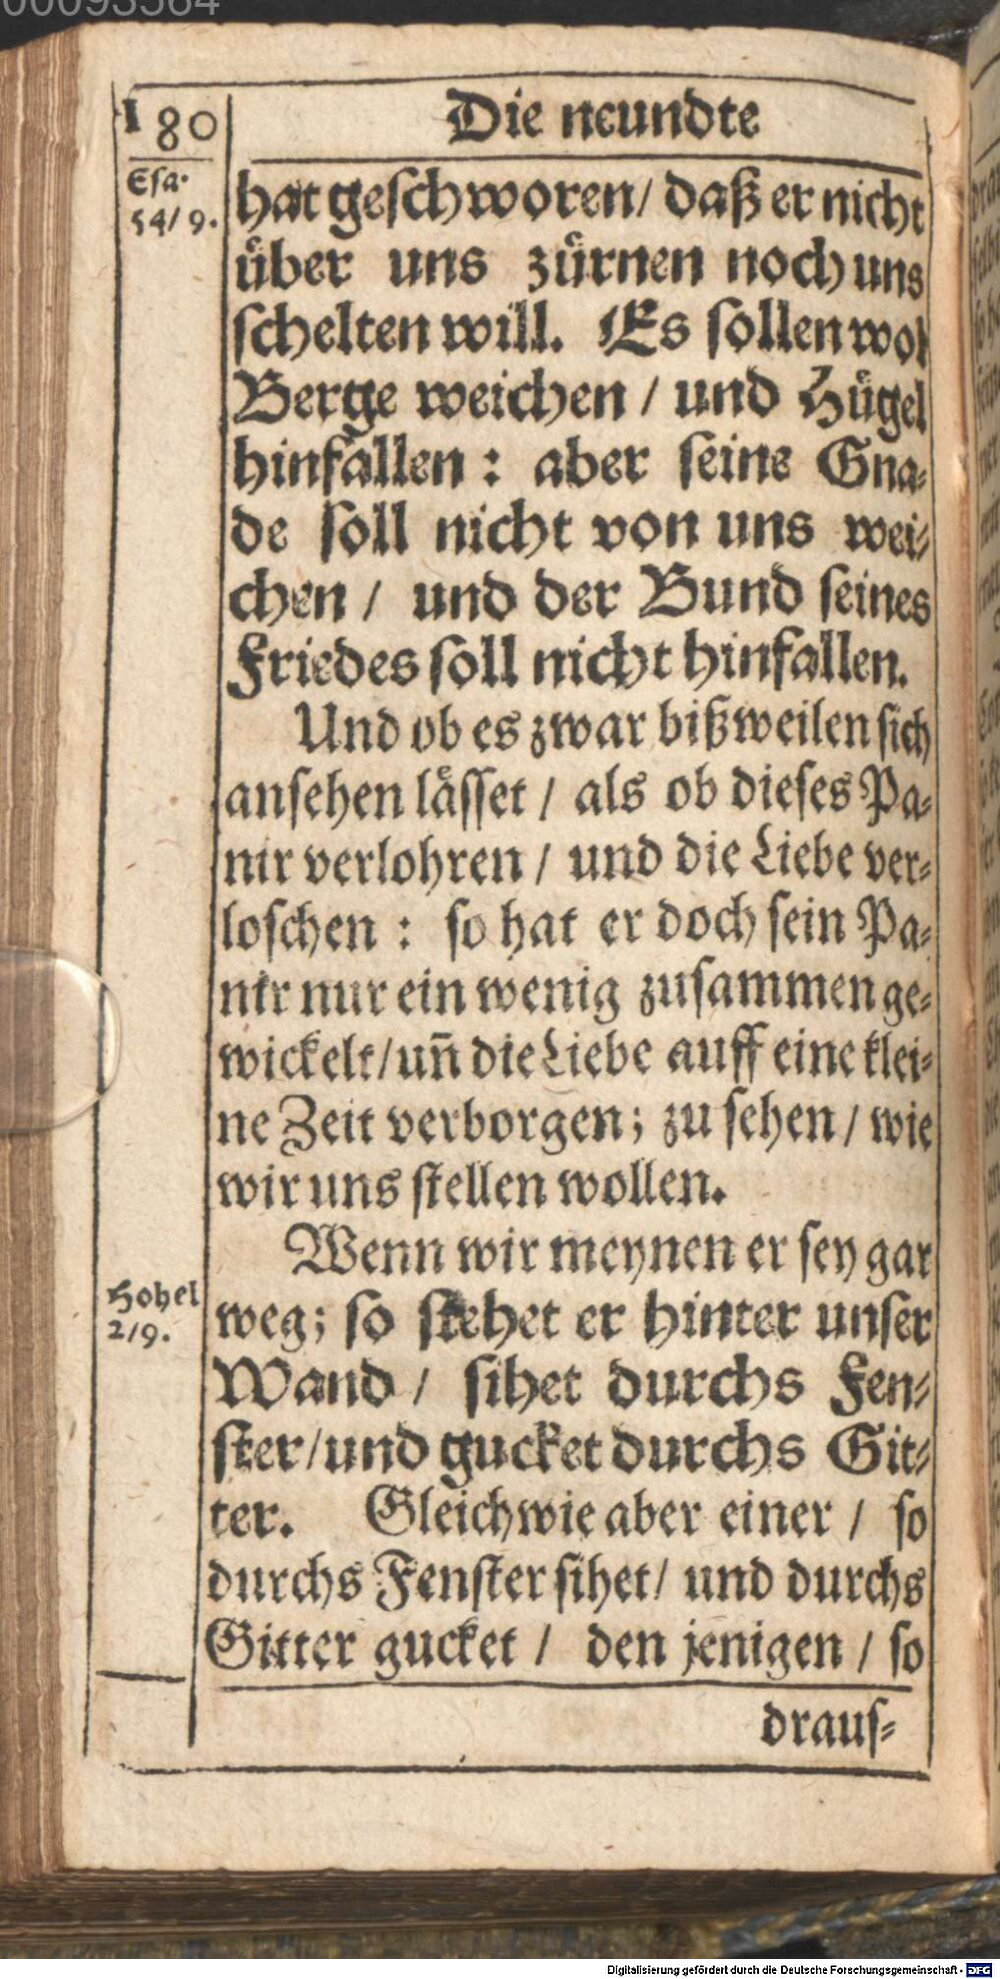 00093564
180
Die neundte
Esa.
54/9.
hat geschworen/ daß er nicht
über uns zürnen noch uns
schelten will. Es sollen wol
Berge weichen / und Hügel
hinfallen : aber seine Gna-
de soll nicht von uns wei-
chen / und der Bund seines
Friedes soll nicht hinfallen.
Und ob es zwar bißweilen sich
ansehen lässet / als ob dieses Pa-
nir verlohren / und die Liebe ver-
loschen : so hat er doch sein Pa-
nir nur ein wenig zusammen ge-
wickelt/uñ die Liebe auff eine klei-
ne Zeit verborgen; zu sehen / wie
wir uns stellen wollen.
Wenn wir meynen er sey gar
Hohel
2/9.
weg; so stehet er hinter unser
Wand / sihet durchs Fen-
ster/und gucket durchs Git-
ter. Gleichwie aber einer / so
durchs Fenster sihet/ und durchs
Gitter gucket / den jenigen / so
draus-
Digitalisierung gefördert durch die Deutsche Forschungsgemeinschaft - DFG